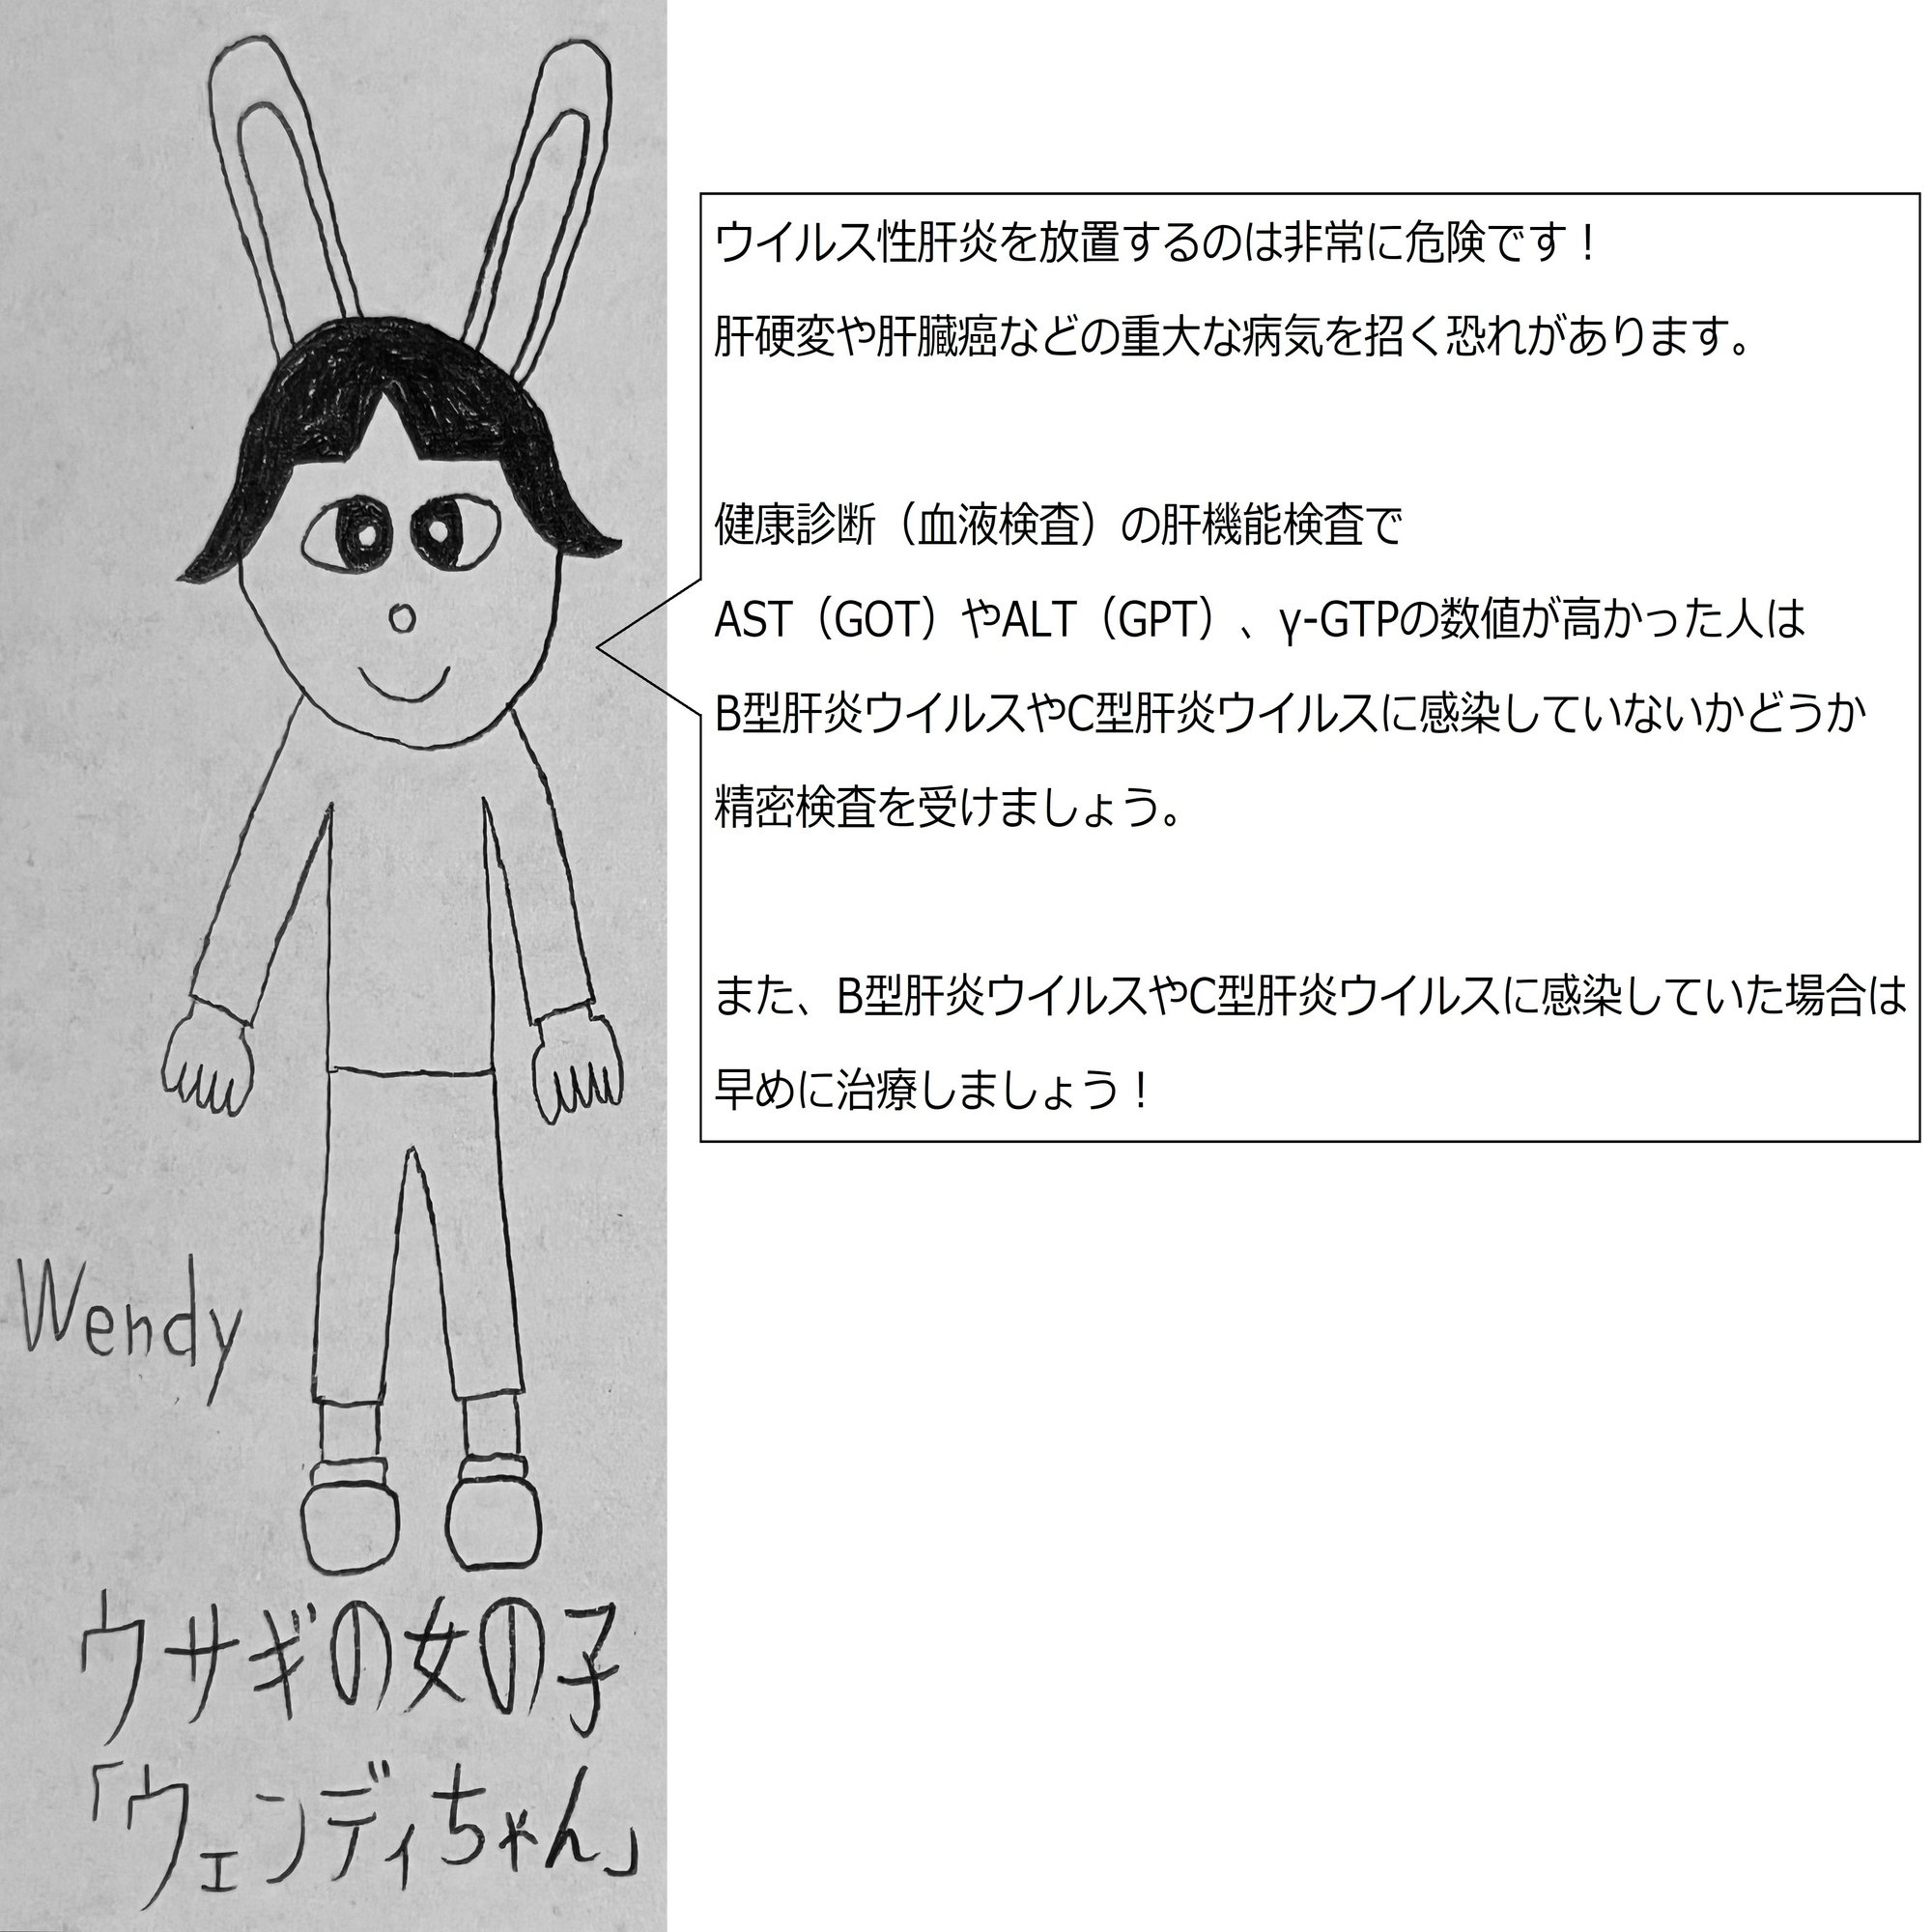 ウイルス性肝炎を放置するのは非常に危険です！
肝硬変や肝臓癌などの重大な病気を招く恐れがあります。
健康診断（血液検査）の肝機能検査で
AST（GOT）やALT（GPT）、γ-GTPの数値が高かった人は
B型肝炎ウイルスやC型肝炎ウイルスに感染していないかどうか
精密検査を受けましょう。
また、B型肝炎ウイルスやC型肝炎ウイルスに感染していた場合は
早めに治療しましょう！
Wendy
ウサギの女の子
「ウェンディちゃん」